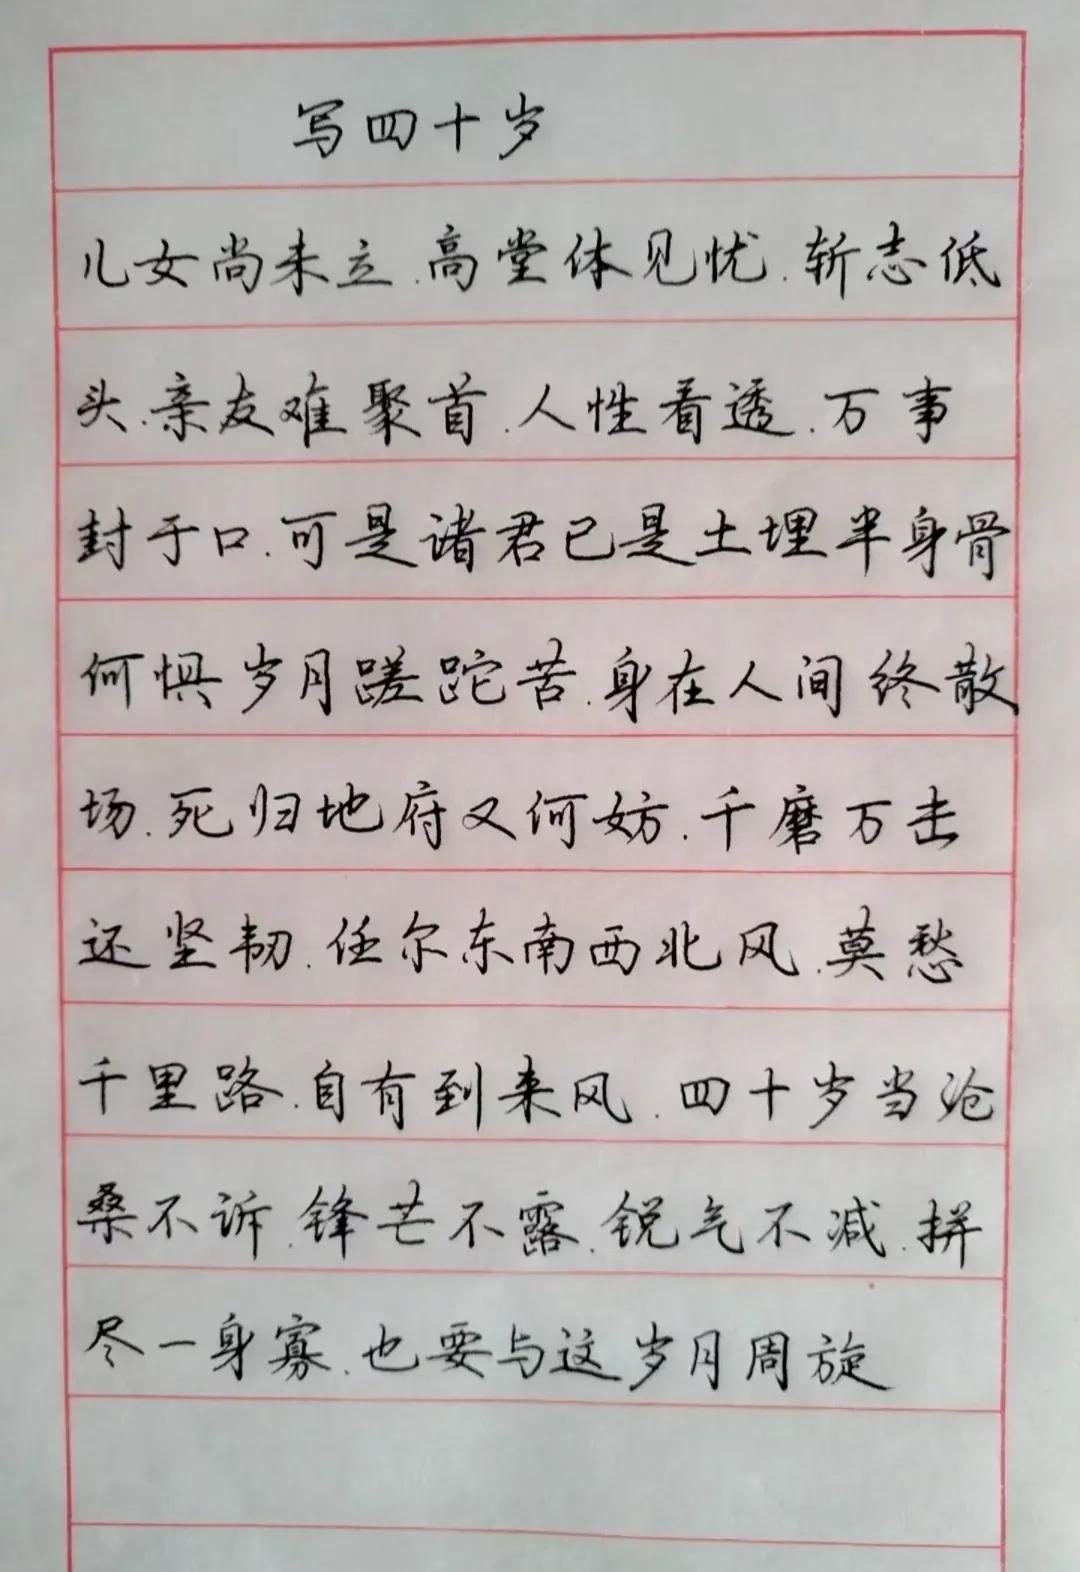 写四十岁
儿女尚未立.高堂体见忧.斩志低
头.亲友难聚首.人性看透.万事
封于口.可是诸君已是土埋半身骨
何惧岁月蹉跎苦.身在人间终散
场.死归地府又何妨.千磨万击
还坚韧.任尔东南西北风.莫愁
千里路.自有到来风.四十岁当沧
桑不诉.锋芒不露.锐气不减.拼
尽一身寡.也要与这岁月周旋